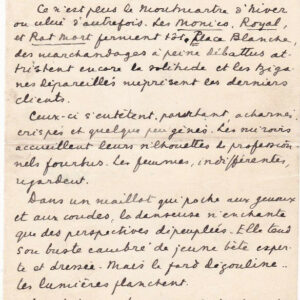 Ce n'est plus le Montmartre d'hiver
ou celui d'autrefois. Les Monico, Royal,
et Rat Mort ferment tôt. Place Blanche,
des marchandages à peine débattus at-
tristent encore la solitude et les Tziga-
nes dépareillés méprisent les derniers
clients.
Ceux-ci s'entêtent, pourtant, acharnés,
crispés et quelque peu gênés. Les miroirs
accueillent leurs silhouettes de profession-
nels fourbus. Les femmes, indifférentes,
regardent.
Dans un maillot qui poche aux genoux
et aux coudes, la danseuse n'enchante
que des perspectives dépeuplées. Elle tend
son buste cambré de jeune bête exper-
te et dressée. Mais le fard dégouline..
les lumières flanchent.